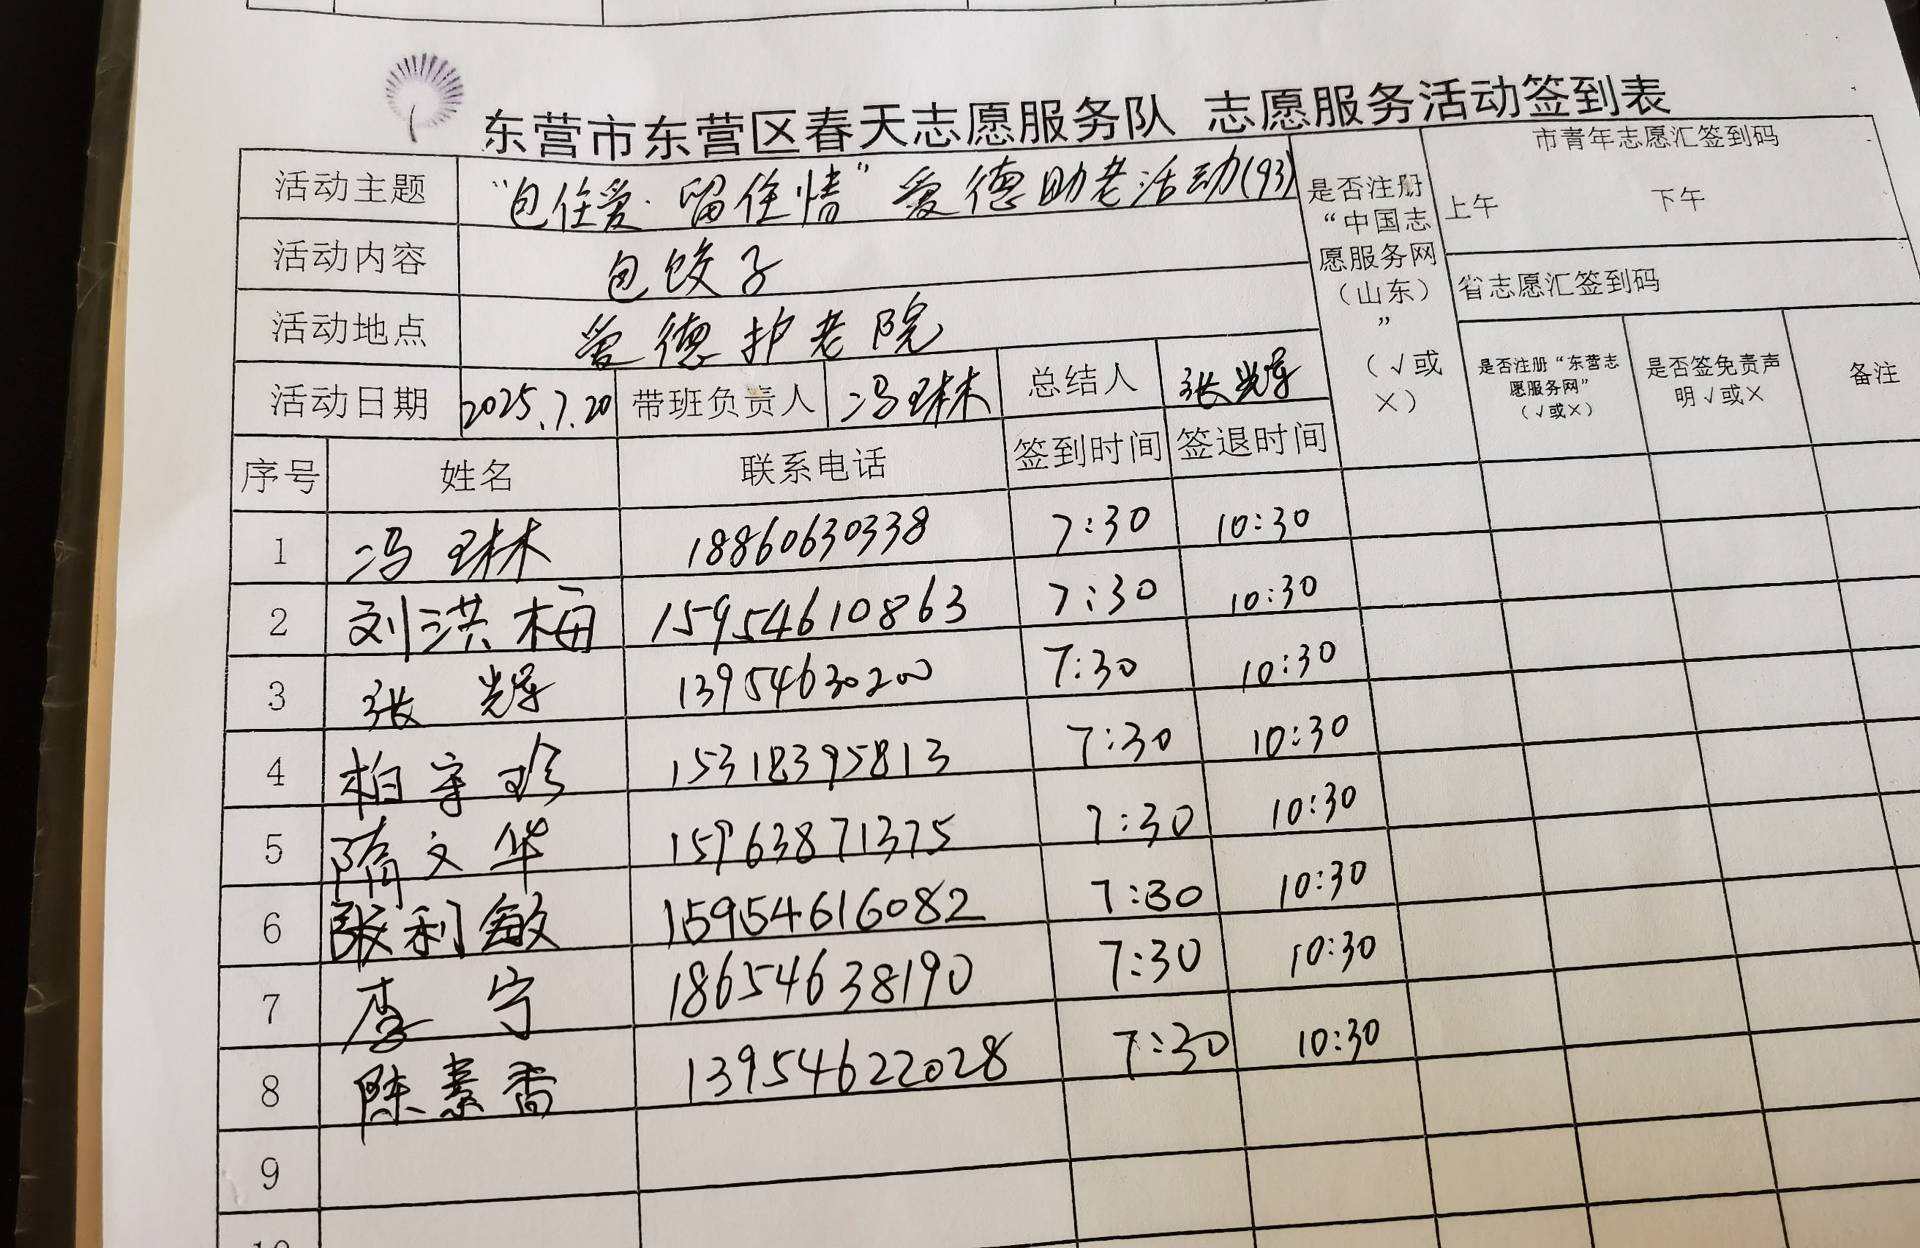 东营市东营区春天志愿服务队 志愿服务活动签到表
活动主题 “包住爱·留住情”爱德助老活动(93)
是否注册“中国志愿服务网（山东）”（√或×）
市青年志愿汇签到码
上午 下午
活动内容 包饺子
省志愿汇签到码
活动地点 爱德护老院
是否注册“东营志愿服务网”（√或×）
是否签免责声明√或×
备注
活动日期 2025.7.20 带班负责人 冯琳 总结人 张辉
序号 姓名 联系电话 签到时间 签退时间
1 冯琳 18860630338 7:30 10:30
2 刘洪梅 15954610863 7:30 10:30
3 张辉 13954630200 7:30 10:30
4 柏守珍 15318395813 7:30 10:30
5 隋文华 15963871375 7:30 10:30
6 张利敏 15954616082 7:30 10:30
7 李宁 18654638190 7:30 10:30
8 陈素香 13954622028 7:30 10:30
9